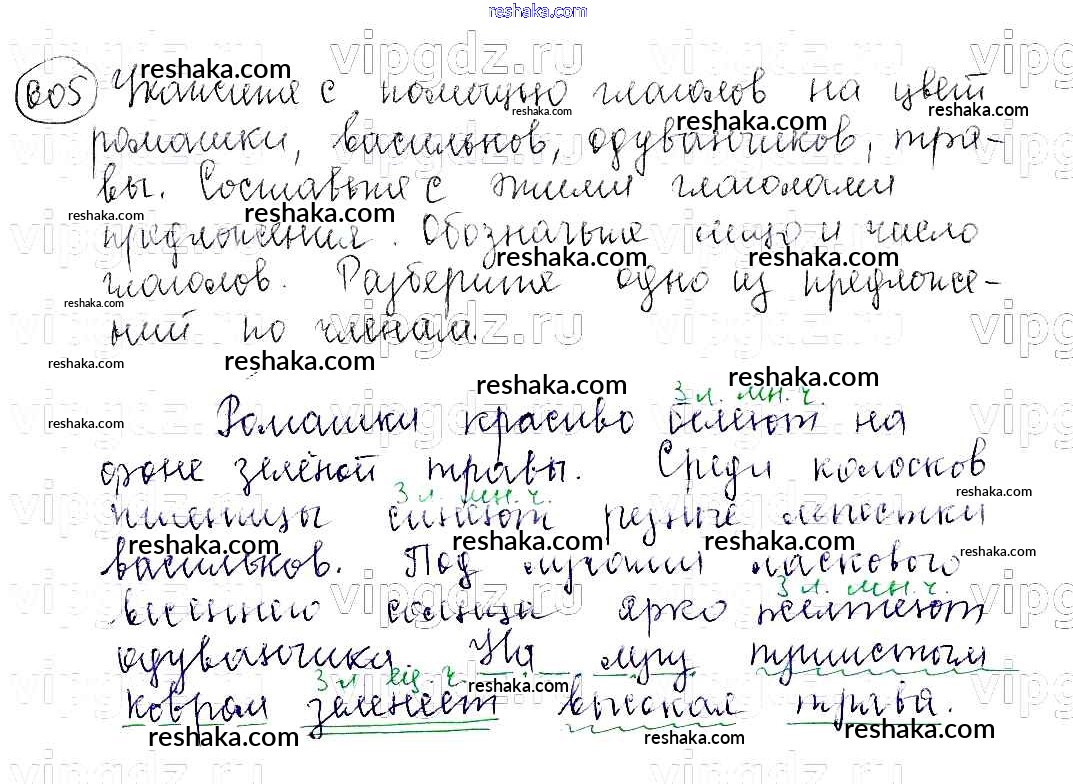 reshaka.com
605 Укажите с помощью глаголов на цвет
ромашки, васильков, одуванчиков, тра-
вы. Составьте с этими глаголами
предложения. Обозначьте лицо и число
глаголов. Разберите одно из предложе-
ний по членам.
3 л. мн. ч.
Ромашки красиво белеют на
фоне зелёной травы. Среди колосков
3 л. мн. ч.
пшеницы синеют резные лепестки
васильков. Под лучами ласкового
3 л. мн. ч.
весеннего солнца ярко желтеют
одуванчики. На лугу пушистым
3 л. ед. ч.
ковром зеленеет высокая трава.
vipgdz.ru
reshaka.com